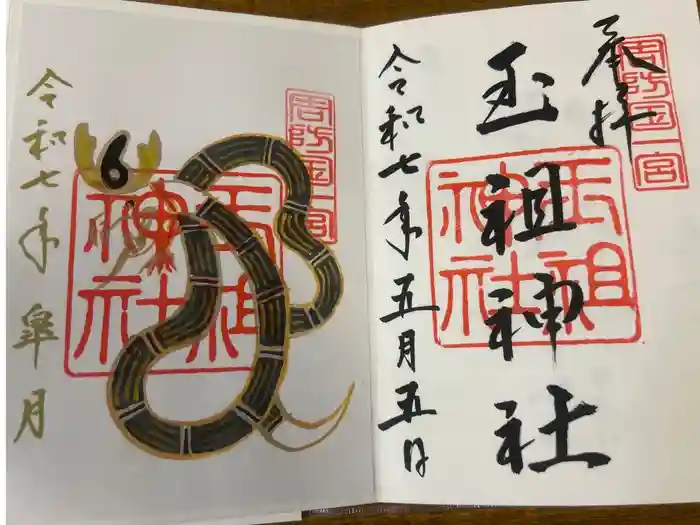 奉拝
周防国一宮
玉祖神社
玉祖神社
令和七年五月五日
周防国一宮
玉祖神社
令和七年 皐月